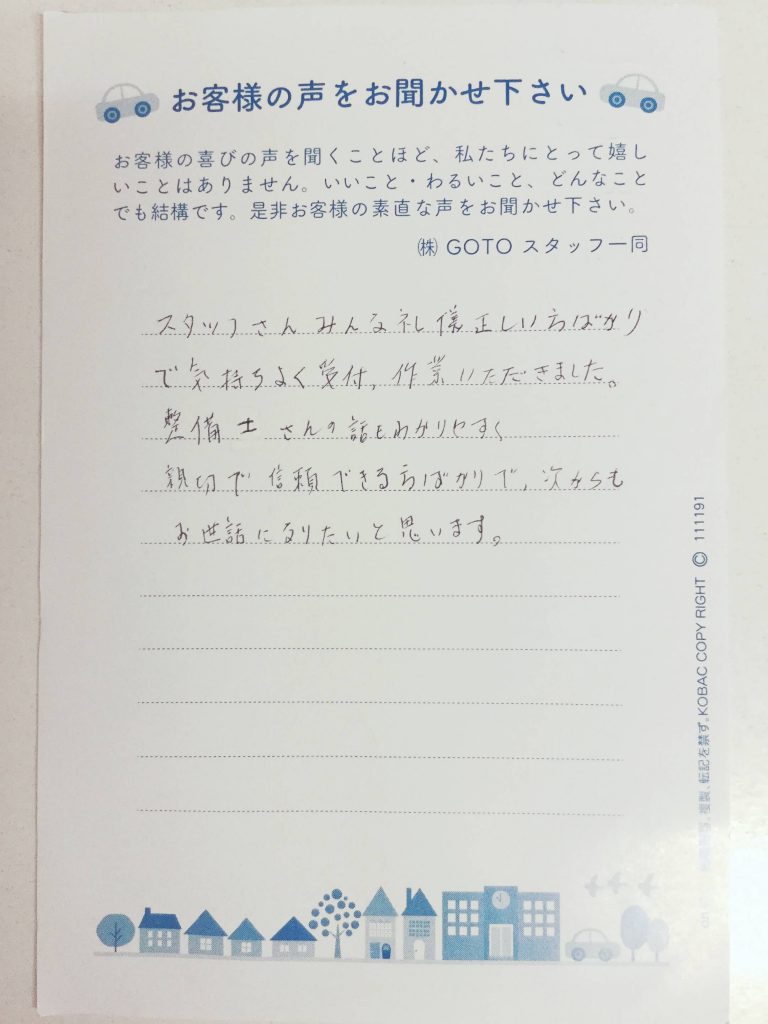 お客様の声をお聞かせ下さい
お客様の喜びの声を聞くことほど、私たちにとって嬉し
いことはありません。いいこと・わるいこと、どんなこと
でも結構です。是非お客様の素直な声をお聞かせ下さい。
㈱ GOTO スタッフ一同
スタッフさんみんな礼儀正しい方ばかり
で気持ちよく受付、作業いただきました。
整備士さんの話もわかりやすく
親切で信頼できる方ばかりで、次からも
お世話になりたいと思います。
複製、転記を禁ず。KOBAC COPY RIGHT © 111191